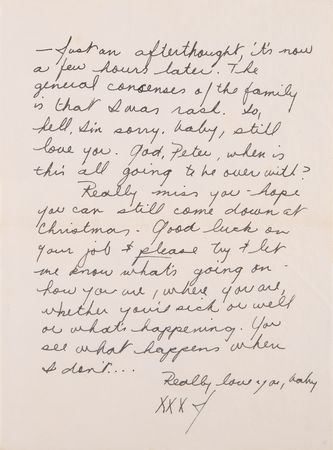 — Just an afterthought, it's now
a few hours later. The
general consenses of the family
is that I was rash. So,
hell, I'm sorry, baby, still
love you. God, Peter, when is
this all going to be over with?
Really miss you - hope
you can still come down at
Christmas. Good luck on
your job & please try & let
me know what's going on -
how you are, where you are,
whether you're sick or well
or what's happening. You
see what happens when
I don't....
Really love you, baby
XXX J